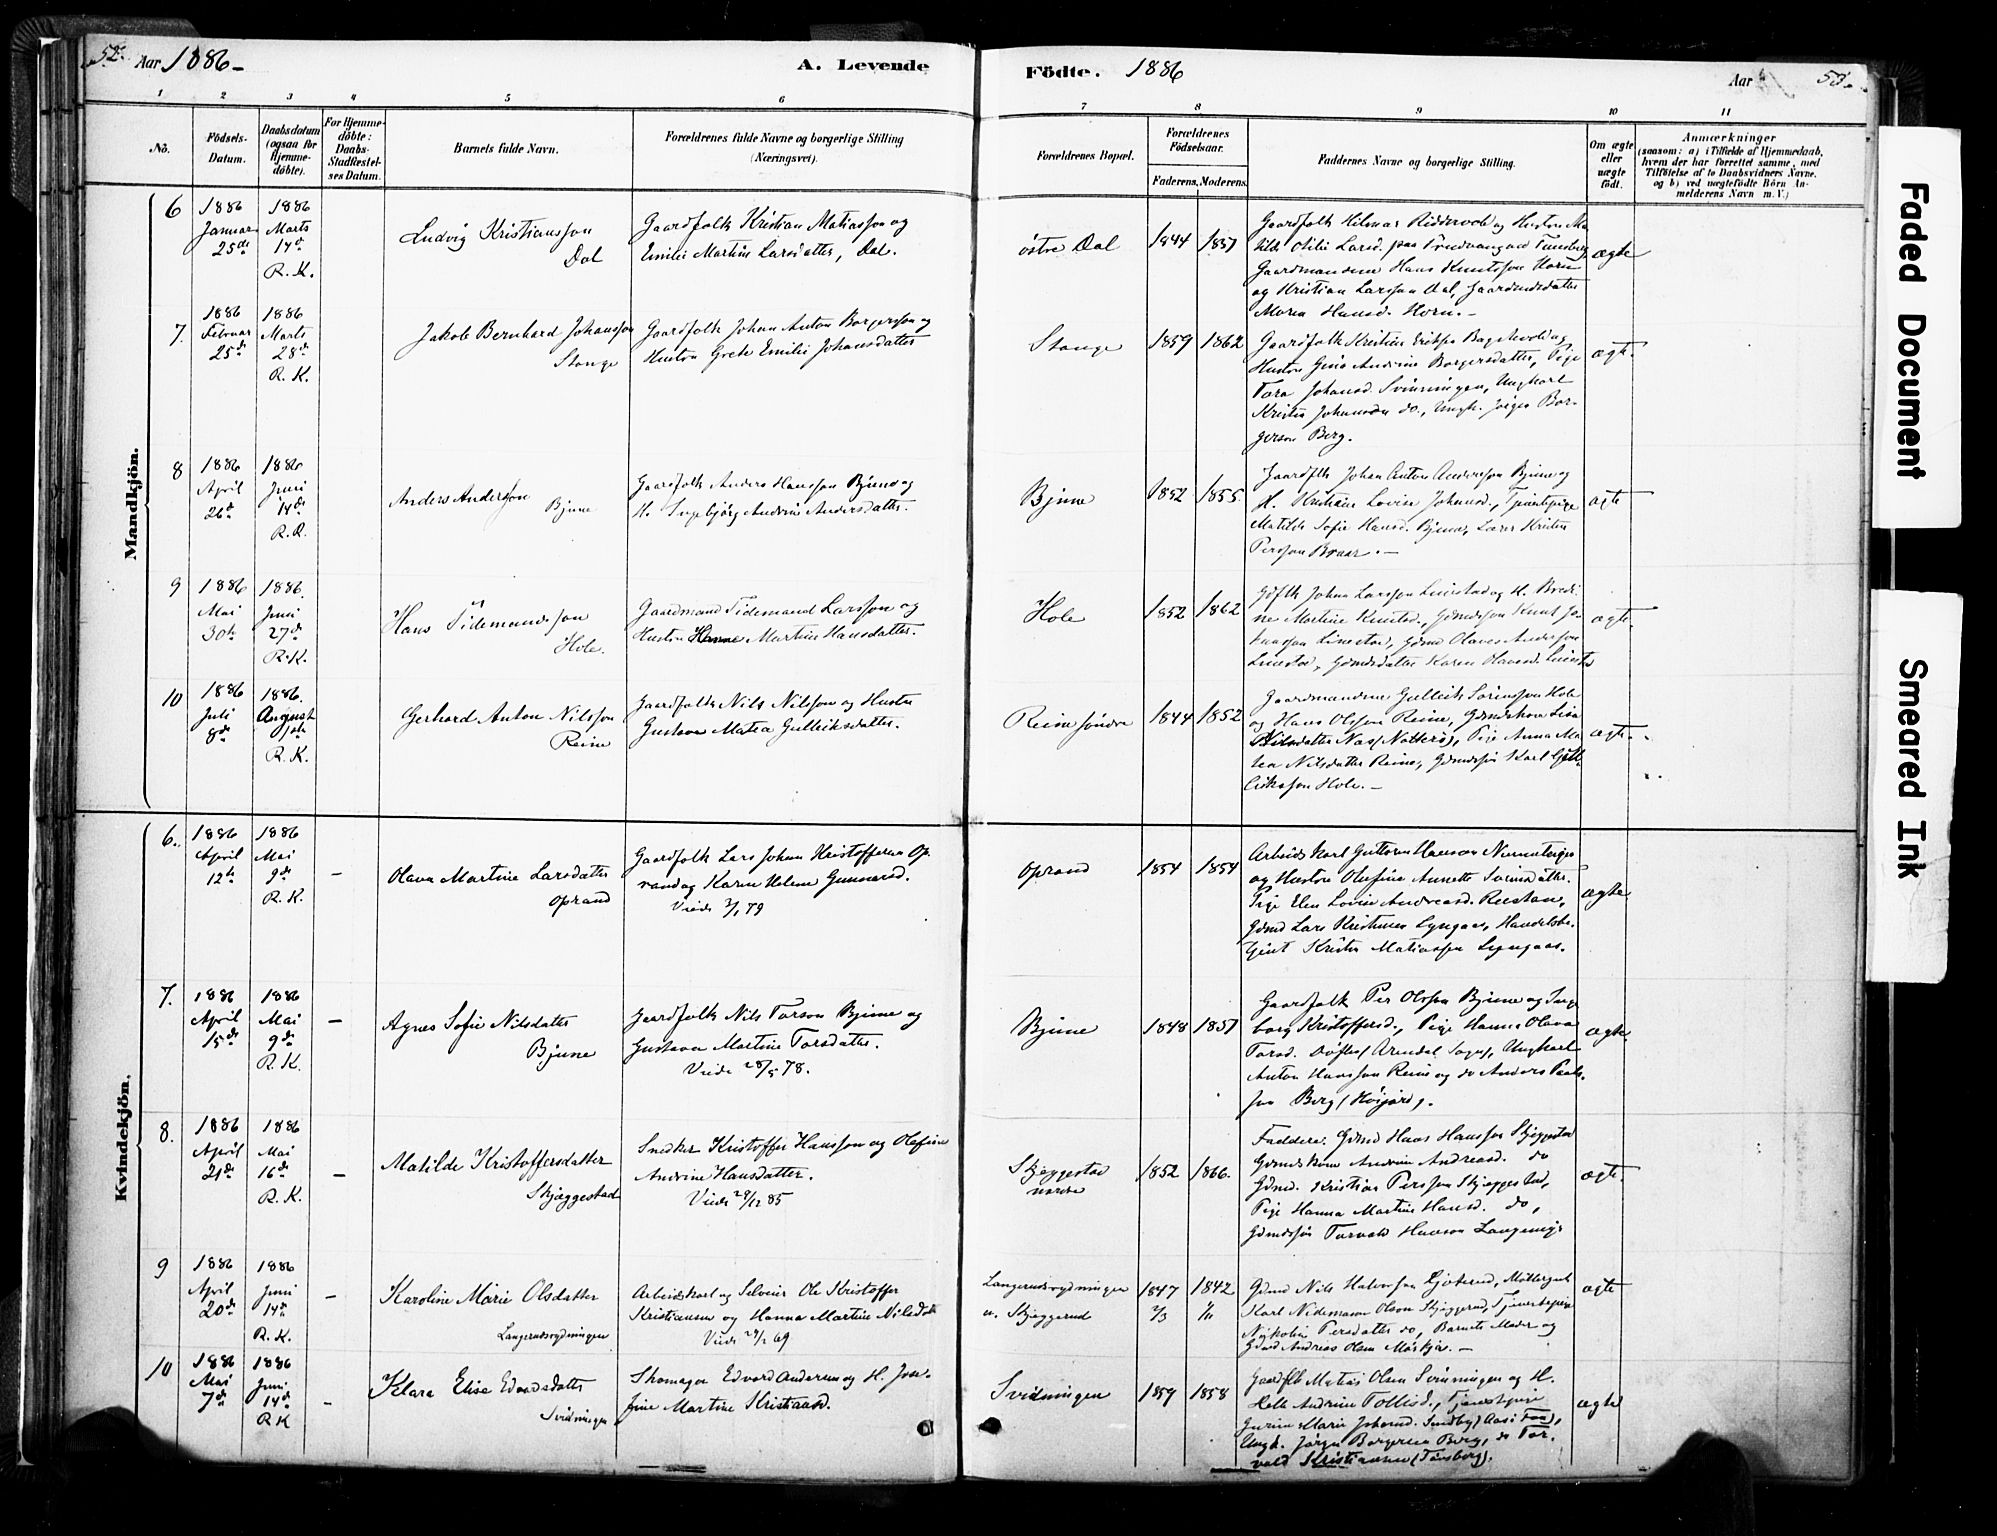 52.
Aar 1886-
A. Levende
Födte. 1886
Aar
53.
1 2 3 4 5 6 7 8 9 10 11
No.
Födsels-
Datum.
Daabsdatum
(ogsaa for
Hjemme-
döbte).
For Hjemme-
döbte:
Daabs-
Stadfæstel-
ses Datum.
Barnets fulde Navn.
Forældrenes fulde Navne og borgerlige Stilling
(Næringsvei).
Forældrenes Bopæl.
Forældrenes
Födselsaar.
Faderens. Moderens.
Faddernes Navne og borgerlige Stilling.
Om ægte
eller
uægte
födt.
Anmærkninger
(saasom: a) i Tilfælde af Hjemmedaab,
hvem der har forrettet samme, med
Tilföielse af to Daabsvidners Navne,
og b) ved uægtefödte Börn An-
melderens Navn m.V.)
Mandkjön.
6
1886
Januar
25de
1886
Marts
14d
R. K.
Ludvig Kristiansson
Dal
Gaardfolk Kristian Matiasson og
Emilie Martine Larsdatter, Dal.
östre Dal
1844 1857
Gaardfolk Hilmar Riddervold og Hustru Ma
tilde Otilie Larsd. paa Trudvang ved Tunsberg,
Gaardmændene Hans Knutsson Horn
og Kristian Larsson Dal, Gaardmdsdatter
Maren Hansd. Horn.-
ægte
7.
1886
Februar
25de
1886
Marts
28de
R. K.
Jakob Bernhard Johansson
Stange
Gaardfolk Johan Anton Borgerson og
Hustru Grete Emilie Johansdatter
Stange
1859 1862
Gaardfolk Kristian Erikss Bagskevold og
Hustru Gina Andrine Borgersdatter, Pige
Tora Johansd. Svinningen, Ungkarl
Kristen Johansen do., Ungk. Jörgen Bor-
gerson Berg.
ægte.
8
1886
April
26d
1886
Juni
14de
R. K.
Anders Anderson
Bjune
Gaardfolk Anders Hansson Bjune og
H. Ingebjörg Andrine Andersdatter.
Bjune
1852 1855
Gaardflk Johan Anton Andersson Bjune og
H. Kristiane Lovise Johansd., Tjenstpige
Matilde Sofie Hansd. Bjune, Lærer Kristen
Persson Braar.-
ægte
9
1886
Mai
30te
1886.
Juni
27de
R. K.
Hans Tidemandsson
Hole.
Gaardmand Tidemand Larsson og
Hustru Hanne Martine Hansdatter.
Hole
1852 1862
Gdflk Johan Larsson Linestad og H. Bredi
ne Martine Knutsd., Gdmdsson Knut Jo-
hansson Linestad, Gdmd Olaves Anderson
Linestad, Gdmdsdatter Karen Olavesd. Linestd
ægte.
10
1886
Juli
8de
1886.
August
R. K.
Gerhard Anton Nilsson
Reine
Gaardfolk Nils Nilsson og Hustru
Gustava Matea Gulleiksdatter.
Reine söndre
1844 1852
Gaardmændene Gulleik Sörensson Hole
og Hans Olsson Reine, Gdmdskone Lisa
Nilsdatter Næs (Nötterö), Pige Anna Ma
tea Nilsdatter Reine, Gdmdssön Karl Gull-
eiksson Hole.-
ægte.
Kvindekjön.
6.
1886
April
12te
1886
Mai
9de
R. K.
-
Olava Martine Larsdatter
Oprand
Gaardfolk Lars Johan Kristoffersen Op-
rand og Karen Helene Gunnarsd.
Viede 3/1 79
Oprand
1854 1854
Arbeidskarl Guttorm Hansen
og Hustru Olufine Annette Svensdatter.
Pige Elen Lovise Andreasd. Ruistan,
Gdmd Lars Kristensen Lyngaas, Handelsbe-
tjent Kristen Matiasson Lyngaas.
ægte
7.
1886
April
15de
1886
Mai
9de
R. K.
-
Agnes Sofie Nilsdatter
Bjune
Gaardfolk Nils Torson Bjune og
Gustava Martine Torsdatter.
Viede 28/5 78.
Bjune
1848 1857
Gaardfolk Per Olsson Bjune og Inge
borg Kristoffersd., Pige Hanne Olava
Torsd. (Arendal Sogn), Ungkarl
Anton Hansson Reine og do Anders Paals-
son Berg (Höijord).
ægte
8.
1886
April
21de
1886
Mai
16de
R. K.
-
Matilde Kristoffersdatter
Skjæggestad
Snedker Kristoffer Hansson og Olefine
Andrine Hansdatter.
Viede 28/12 85
Skjæggestad
nordre
1852 1866.
Faddere: Gdmd Hans Hansson Skjeggestad
Gdmdskone Andrine Andreasd. do
Gdmd. Kristian Persson Skjæggestad,
Pige Hanna Martine Hansd. do,
Gdmdssön Torvald Hansson
ægte.
9
1886
April
20de
1886
Juni
14de
R. K.
-
Karoline Marie Olsdatter
Langerudsrydningen
Arbeidskarl og Selveier Ole Kristoffer
Kristiansen og Hanna Martine Nilsdatter
Viede 29/12 69
Langerudsrydningen
u. Skjeggerud
1847 1842
2/3 1/11
Gdmd Nils Halvorsen Gjöterud, Möllergut
Karl Nidemann Olsen Skjeggerud, Tjenestepige
Nikoline Persdatter do, Barnets Moder og
Gdmd Andreas Olsen Möskjær.-
ægte
10
1886
Mai
7de
1886
Juni
14de
R. K
-
Klara Elise Edvardsdatter
Svidningen
Skomager Edvard Andersen og H. Jose-
fine Martine Kristiansd.
Svidningen
1859 1858
Gaardflk Matias Olsen Svinningen og H.
Helle Andrine Tollefsd., Tjenestepige
Gurine Marie Johansd. Sundby (Aasi Fos),
Ungk. Jörgen Borgersen Berg, do Tor-
vald Kristiansen (Tönsberg).
ægte
Faded Document
Smeared Ink